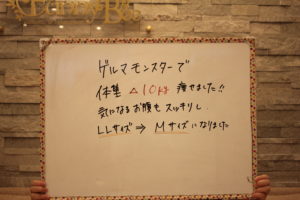 ゲルマモンスターで
体重 △10kg 痩せました!!
気になるお腹も スッキリし
LLサイズ ⇒ Mサイズになりました